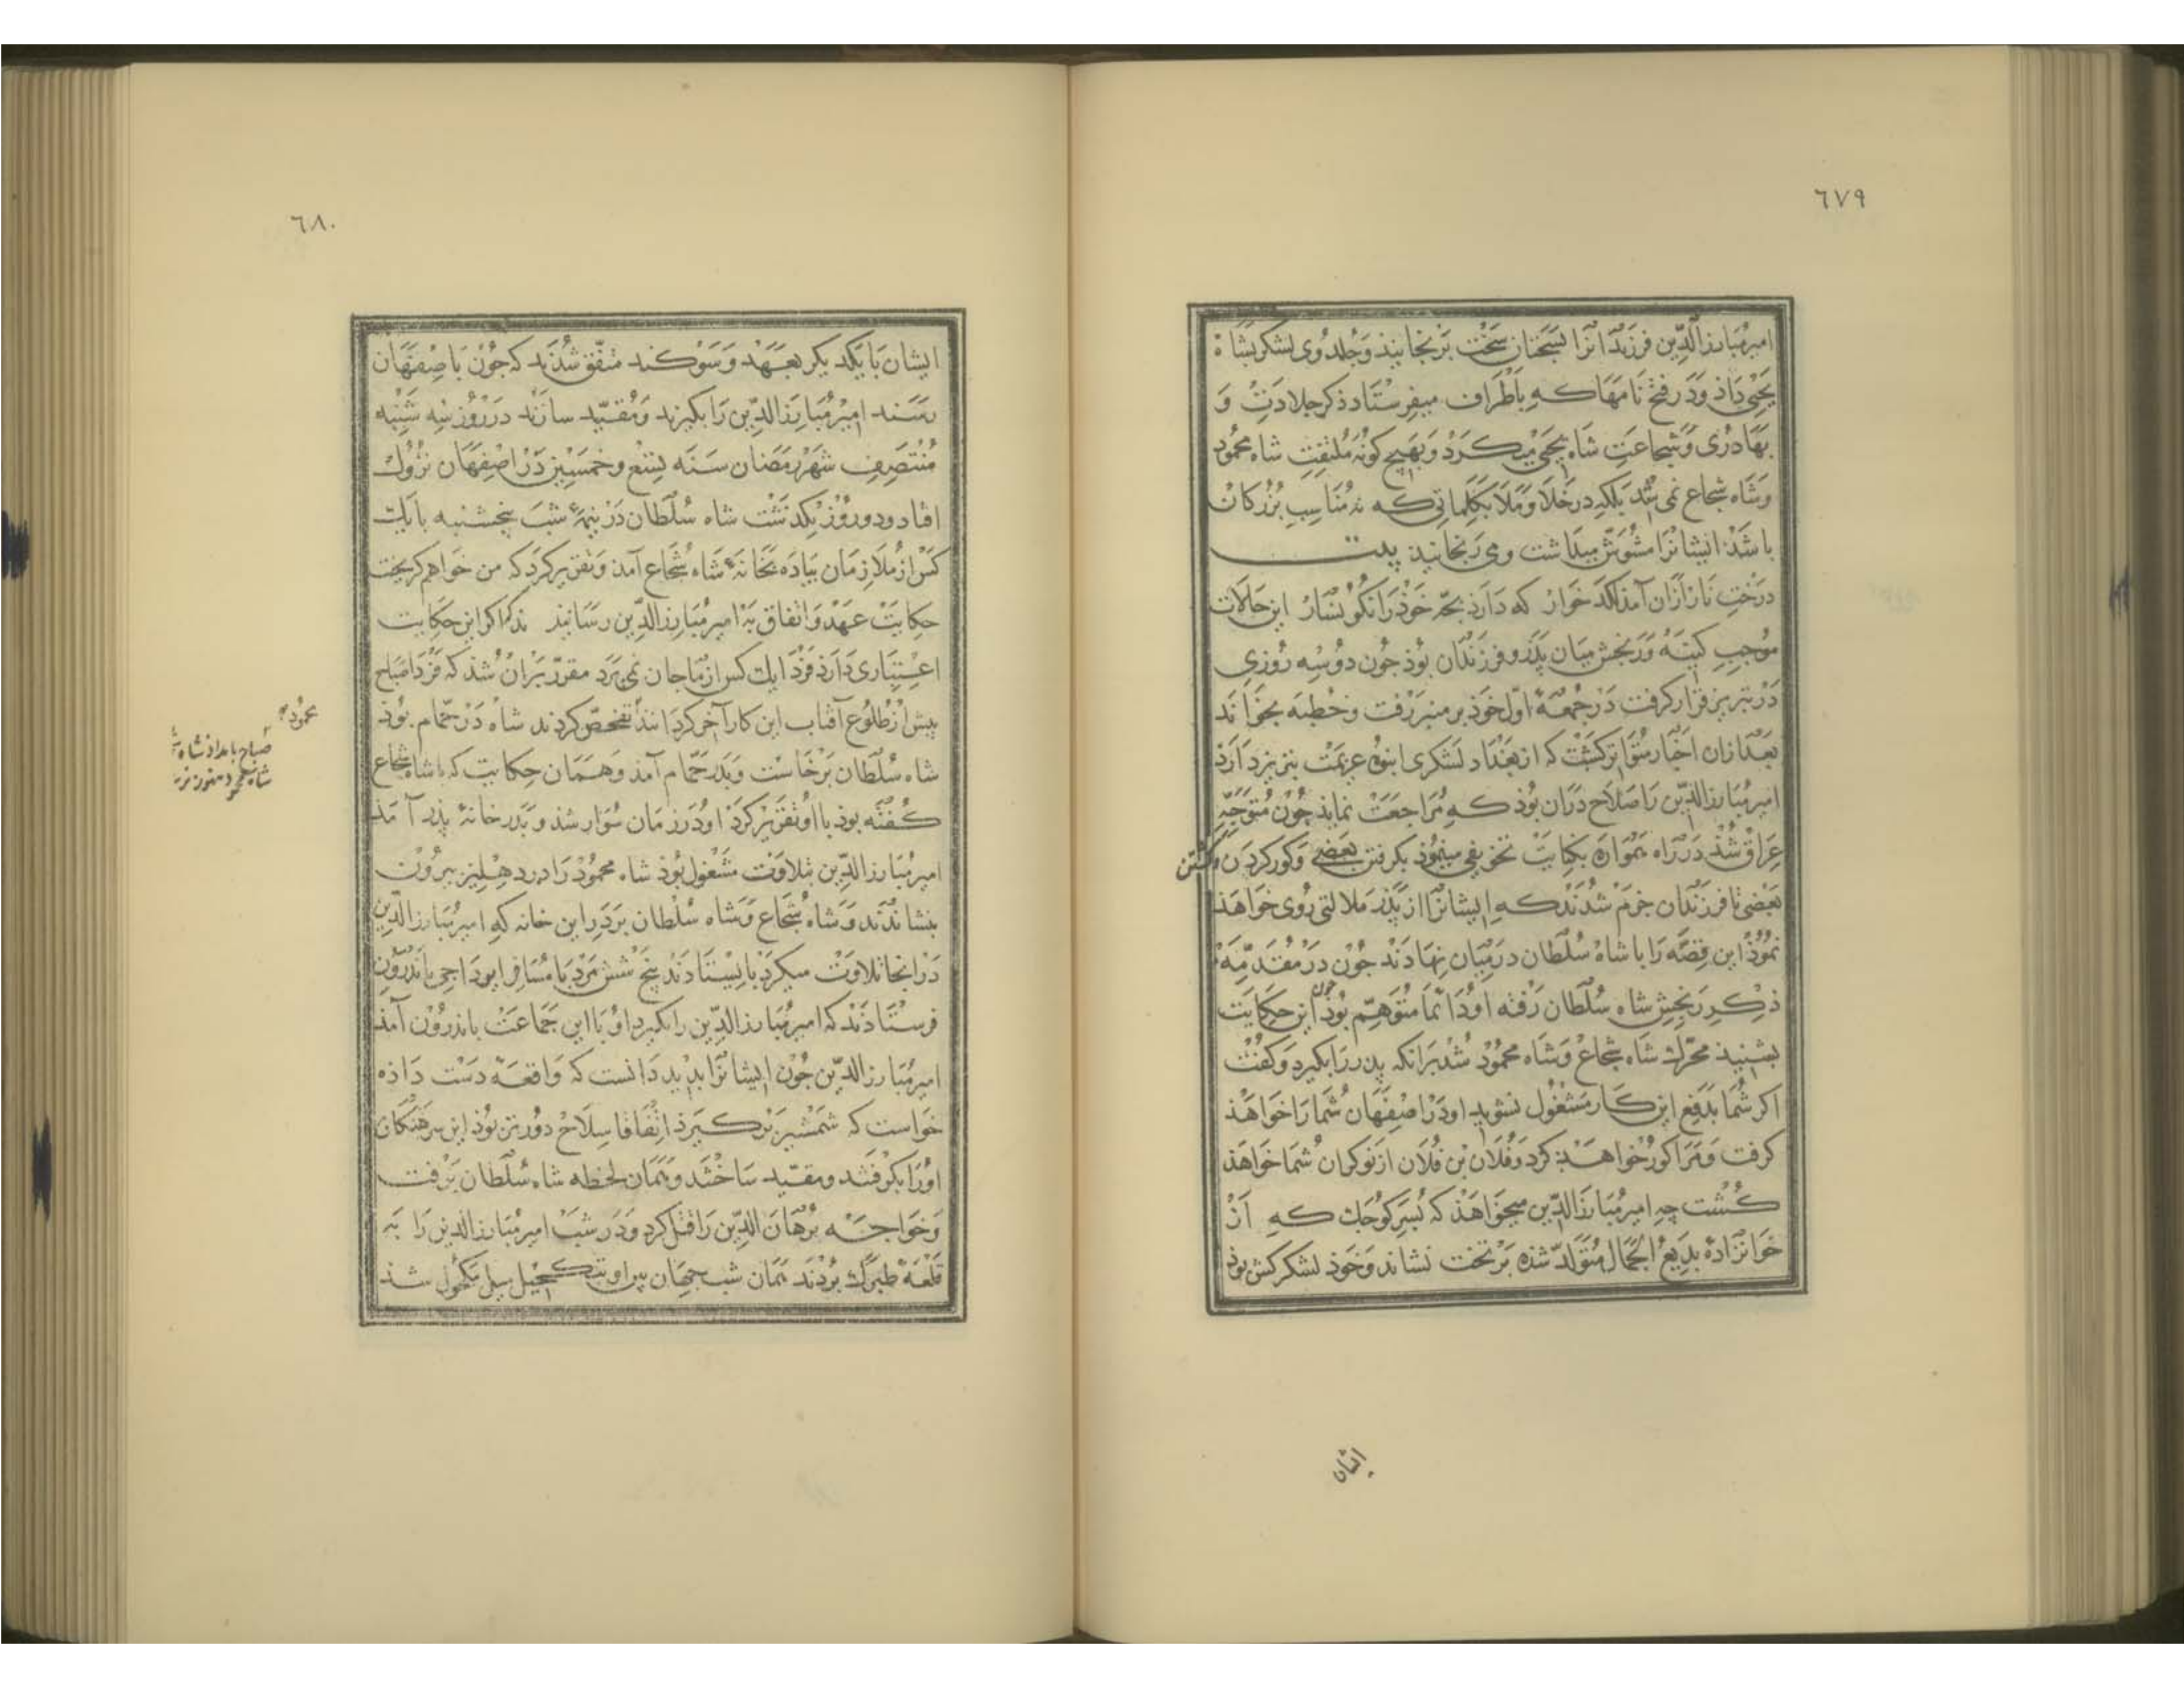 ٦٧٩
امیر مُبارزالدّین فرزندانرا بسخنان سَخْت برنجانید وَجلدوی لشکر بشاه
یَحیی دَاذ وَدر فتح نامَهَا که بِاَطْرَاف میفرِسْتاد ذکر جلادَتْ وَ
بَهادُری وَشجاعَتِ شاه یحیی میکَرَدْ وَبهیچ کونه مُلتفِتِ شاه محمُود
وَشاه شجاع نمی شد بلکه در خَلَا وَمَلَا بکلماتی که نه مُنَاسِبِ بُزُرکانْ
باشَد ایشانرَا مشوَّش میداشت ومی رنجانید بیت
درَختِ نَاز ازان آمذ لکد خوار که دَارَد بچّه خوذ رَا نکونسار این حَالَات
موُجبِ کینَه وَرَنجش میَان پدَر وفرزندَان بُوذ جُون دوُسِه رُوزی
دَر تبریز قرَار کرفت دَر جُمعهٔ اوّل خوذ بر منبر رَفت وخُطبَه بخوَاند
بَعْدازان اخبَار متوَاتر کشتْ که از بغدَاد لشکری انبُوه عزیمَتْ تبریز دارَد
امیر مُبارزالدّین رَا صَلاح درَان بُوذ که مُرَاجَعَتْ نمایذ جُون مُتوجّه
عِرَاق شُذ دَر رَاه هموَاره بکنایَتْ تخویفی مینمُوذ بکرفتن بعَضی وَکور کردَن وکشتن
بَعْضی تا فرزندَان جَزم شدَند که ایشانرَا از پدَر ملالتی رُوی خواهَذ
نمُوذ این قِصَّه رَا با شاه سُلطَان در میَان نهَادَند جُون دَر مُقدّمَه
ذکر رَنجِش شاه سُلطان رَفته اوُ دَائمًا متوَهِّم بُوذ جون این حکایَت
بشنیذ محرّک شاه شجاع وَشاه محمُوْد شُد برَانکه پدر رَا بکیرد وَکُفْت
اکر شُمَا بدَفع این کار مشغُول نشوید او دَر اصْفِهَان شُمَا رَا خوَاهَذ
کرفت وَمَرَا کور خواهَد کرد وَفُلَان بْن فُلَان از نوکران شُمَا خواهَذ
کُشت چه امیر مُبارزَالدّین میخوَاهَذ که پُسَر کوُجک که از
خوانزَادهٔ بدِیعُ الجَمَال مُتَولّد شذه بَر تخت نشاند وَخوذ لشکر کش بوذ
ایشان
٦٨٠
ایشان بَا یکد یکر بعَهْد وَسَوکند متّفق شُدَند که جُونْ بَاصْفهَان
رسَند امیر مُبَارزَالدّین رَا بکیرند وَمُقیّد سازند در رُوز سِه شنبه
مُنْتَصِفِ شهرِ رَمَضان سَنَه تِسْع وخمَسین دَر اصْفهَان نزُولْ
افتاد ودو رُوز بکذشت شاه سُلطان دَر نیمهٔ شبَ پنجشنبه با یک
کسْ از مُلازِمان پیَاده بخَانهٔ شاه شُجاع آمذ وتقریر کرَد که من خواهم کریخت
حکایَتْ عَهْد وَاتّفاق بَه امیر مُبَارزالدّین رسَانید ند اکر این حکایت
اعتِباری دَارد فردَا یک کس از مَا جان نمی برَد مقرّر بَران شُذ که فردَا صَباح
پیش از طلوُع آفتاب این کار آخر کردَانند تفحّص کردند شاه دَر حمّام بُوذ
محمُود
صباح بامداد شاه
شاه محمود هنوز
شاه سُلطان برخاست وَبدَر حمّام آمذ وهمَان حِکایت که با شاه شجاع
کُفتَه بوذ با اُو تقریر کرَد اودَر زمَان سُوَار شذ وبَدَر خانهٔ پدر آمَذ
امیر مُبَارزالدّین بتلاوَتْ مشغُول بُوذ شاه محمُوْد رَا در دهْلیز بیروُن
بنشاندَند وَشاه شُجاع وَشاه سُلْطان بَر دَر این خانه که امیر مُبَارزالدّین
دَر انجا تلاوَتْ میکرَد بایسْتادَند پنج شش مرَد بَا مُسَافر ایوداجی باندَرُون
فرسْتادَند که امیر مُبَارزالدّین رابکیرد اوُ با این جماعَتْ باندرُون آمذ
امیر مُبارزالدّین جُون ایشانرَا بدید دَانست که وَاقعَهٔ دَسْت دَاذه
خواست که شمْشیر برکیرَذ اتّفاقا سِلَاحْ دُورتر بُوذ این سرهنکان
اورَا بکرفتند ومقیّد سَاختند وَهَمَان لحظه شاه سُلطان برفت
وَخواجَه بُرهَان الدّین رَا قتل کرد وَدر شبْ امیر مُبَارزالدین رَا بَه
قلعَهٔ طبرَک بُرْدند همَان شب جهَان بین او بتکحیل میل مکحول شذ